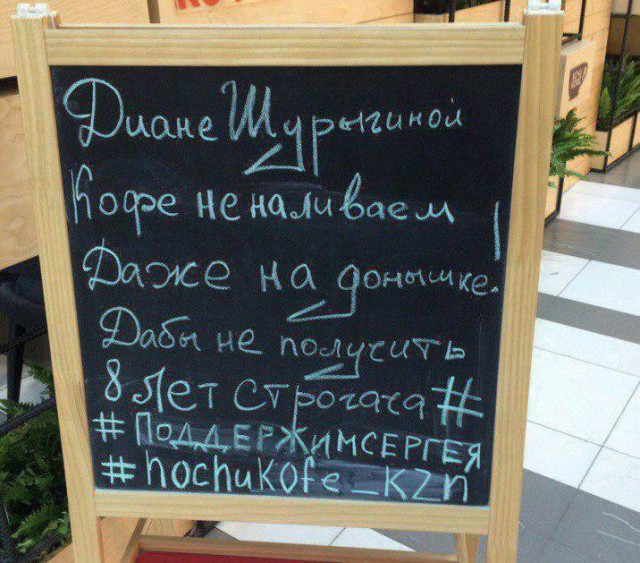 Диане Шурыгиной
Кофе не наливаем
Даже на донышке!
Дабы не получить
8 лет строгача #
#Поддержимсергея
#hochukofe_Kzn